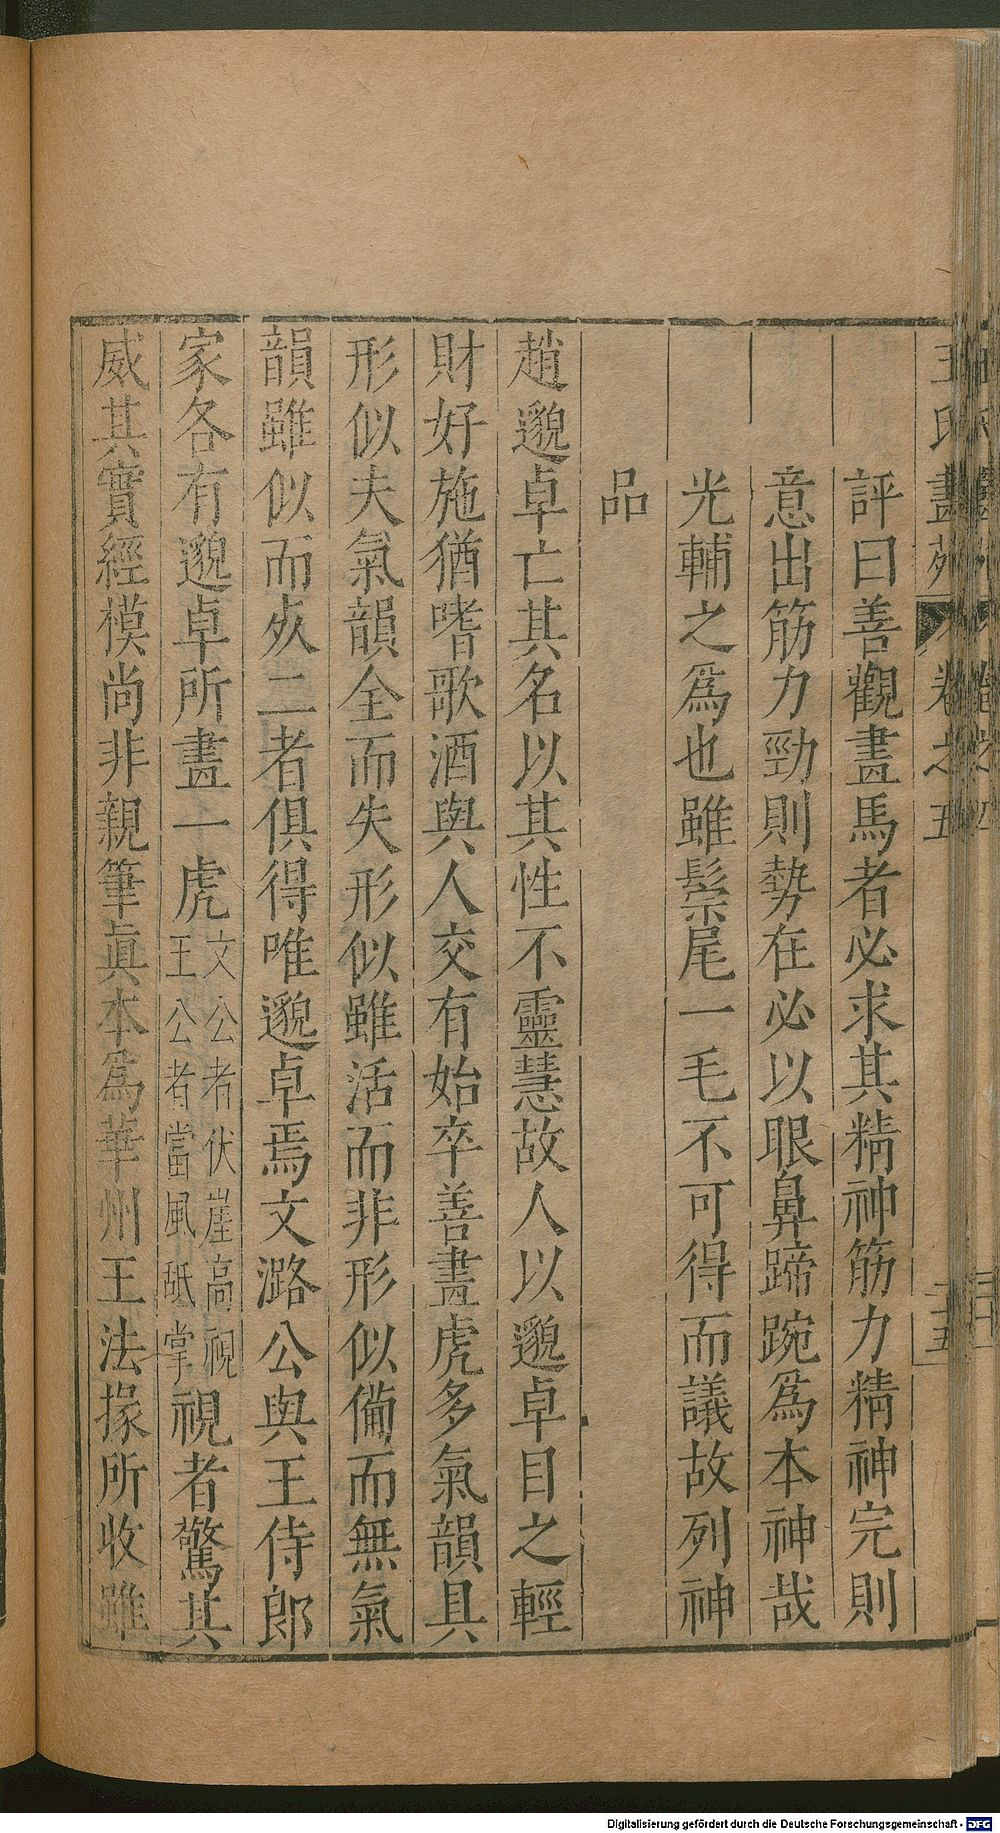 王氏畫苑 卷之五 十五
評曰善觀畫馬者必求其精神筋力精神完則
意出筋力勁則勢在必以眼鼻蹄踠爲本神哉
光輔之爲也雖鬃尾一毛不可得而議故列神
品
趙邈卓亡其名以其性不靈慧故人以邈卓目之輕
財好施猶嗜歌酒與人交有始卒善畫虎多氣韻具
形似夫氣韻全而失形似雖活而非形似備而無氣
韻雖似而歿二者俱得唯邈卓焉文潞公與王侍郎
家各有邈卓所畫一虎文公者伏崖高視王公者當風舐掌視者驚其
威其實經模尚非親筆眞本爲華州王法掾所收雖
Digitalisierung gefördert durch die Deutsche Forschungsgemeinschaft - DFG